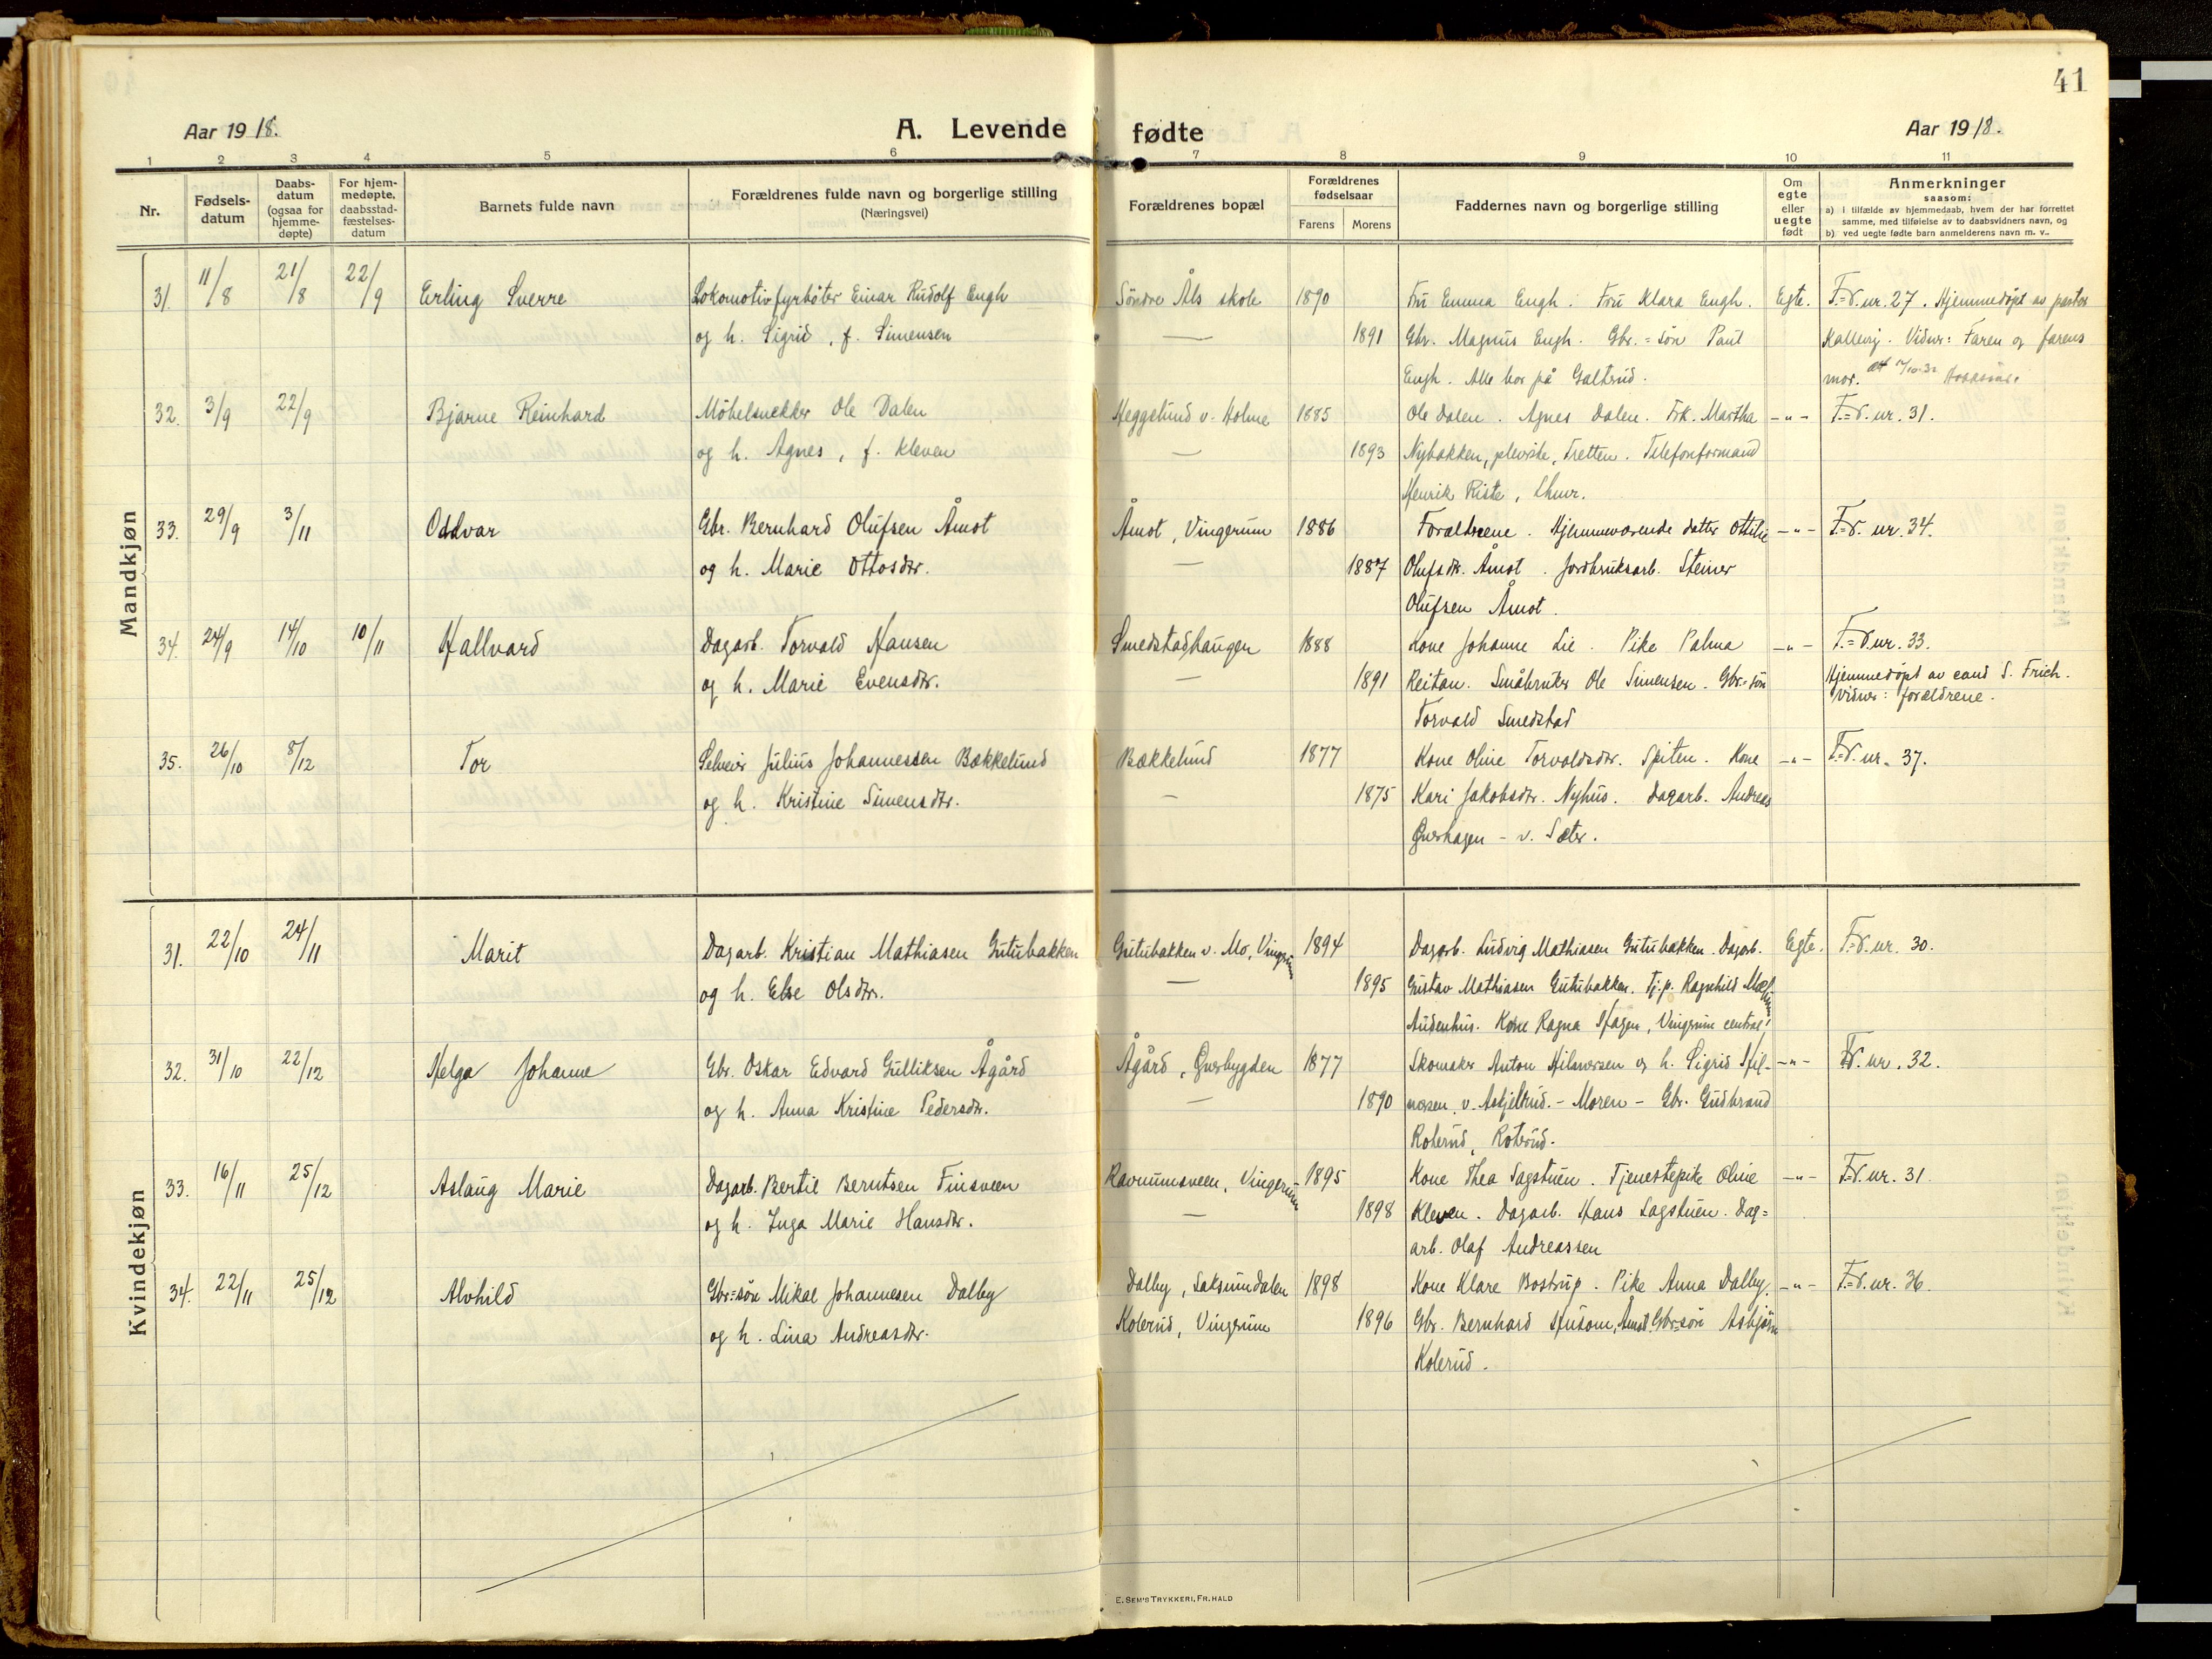 41
Aar 1918.
A. Levende fødte
Aar 1918.
1 2 3 4 5 6 7 8 9 10 11
Nr.
Fødsels-
datum
Daabs-
datum
(ogsaa for
hjemme-
døpte)
For hjem-
medøpte,
daabsstad-
fæstelses-
datum
Barnets fulde navn
Forældrenes fulde navn og borgerlige stilling
(Næringsvei)
Forældrenes bopæl
Forældrenes
fødselsaar
Farens Morens
Faddernes navn og borgerlige stilling
Om
egte
eller
uegte
født
Anmerkninger
saasom:
a) i tilfælde av hjemmedaab, hvem der har forrettet
samme, med tilføielse av to daabsvidners navn, og
b) ved uegte fødte barn anmelderens navn m. v..
Mandkjøn
31. 11/8 21/8 22/9 Erling Sverre Lokomotivfyrbøter Einar Rudolf Engh Søndre Åls skole 1890 Fru Emma Engh. Fru Klara Engh. Egte. F.=r. nr. 27. Hjemmedøpt av pastor
og h. Sigrid, f. Simensen — 1891 Gbr. Magnus Engh. Gbr.=søn Paul Kallevig. Vidner: Faren og farens
Engh. Alle bor på Galterud. mor.
32. 3/9 22/9 Bjarne Reinhard Møbelsnekker Ole Dalen Heggelund v. Holme 1885 Ole Dalen. Agnes Dalen. Frk. Martha -"- F.=r. nr. 31.
og h. Agnes, f. Kleven — 1893 Nybakken, pleierske, Tretten. Telefonformand
Henrik Riste, Lhmr.
33. 29/9 3/11 Oddvar Gbr. Bernhard Olufsen Åmot Åmot, Vingerum 1886 Forældrene. Hjemmeværende datter Ottilie -"- F.=r. nr. 34.
og h. Marie Ottosdtr. — 1887 Olufsdtr. Åmot. Jordbruksarb. Steiner
Olufsen Åmot.
34. 24/9 14/10 10/11 Hallvard Dagarb. Torvald Hansen Smedstadhaugen 1888 Kone Johanne Lie. Pike Palma -"- F.=r. nr. 33.
og h. Marie Evensdtr. — 1891 Reitan. Småbruker Ole Simensen. Gbr.=søn Hjemmedøpt av cand S. Frich.
Torvald Smedstad Vidner: forældrene.
35. 26/10 8/12 Tor Selveier Julius Johannessen Bækkelund Bækkelund 1877 Kone Oline Torvoldsdtr. Spiten. Kone -"- F.=r. nr. 37.
og h. Kristine Simensdtr. — 1875 Kari Jakobsdtr. Nyhus. Dagarb. Andreas
Øverhagen - v. Sæter.
Kvindekjøn
31. 22/10 24/11 Marit Dagarb. Kristian Mathiasen Gutubakken Gutubakken v. Mo, Vingrum 1894 Dagarb. Ludvig Mathiasen Gutubakken. Dagarb. Egte. F.=r. nr. 30.
og h. Else Olsdtr. — 1895 Gustav Mathiasen Gutubakken. Tj.p. Ragnhild Mælum
Audenhus. Kone Ragna Hagen, Vingrum central.
32. 31/10 22/12 Helga Johanne Gbr. Oskar Edvard Gulliksen Ågård Ågård, Øverbygden 1877 Skomaker Anton Hilmersen og h. Sigrid Hil- -"- F.=r. nr. 32.
og h. Anna Kristine Pedersdtr. — 1890 mersen v. Askjeltrud. - Moren - Gbr. Gudbrand
Roterud, Roterud.
33. 16/11 25/12 Aslaug Marie Dagarb. Bertil Berntsen Finsveen Ravnumsveen, Vingerum 1895 Kone Thea Sagstuen. Tjenestepike Oline -"- F.=r. nr. 31.
og h. Inga Marie Hansdtr. — 1898 Kleven. Dagarb. Hans Sagstuen. Dag=
arb. Olaf Andreassen
34. 22/11 25/12 Alvhild Gbr.=søn Mikal Johannesen Dalby Dalby, Saksumdalen 1898 Kone Klare Bostrup. Pike Anna Dalby. -"- F.=r. nr. 36.
og h. Lina Andreasdtr. Kolerud, Vingrum 1896 Gbr. Bernhard Husom, Åmot. Gbr=søn Asbjørn
Kolerud.
E. SEM'S TRYKKERI, FR. HALD